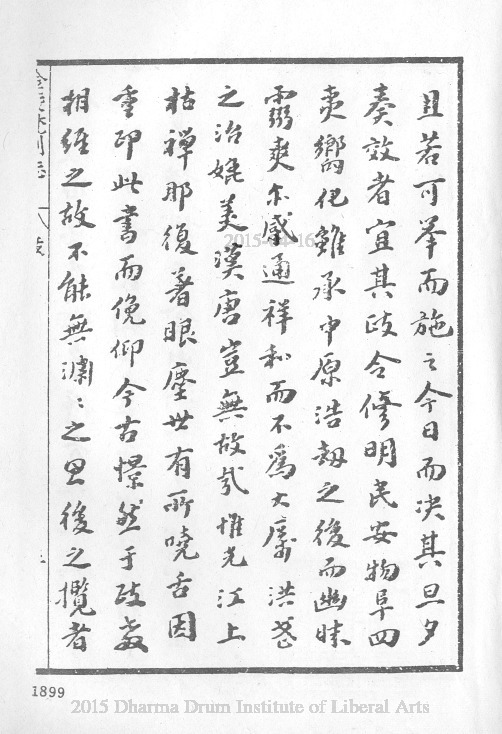 且若可舉而施之今日而決其旦夕
奏效者宜其政令修明民安物阜四
夷嚮化雖承中原浩劫之後而幽昧
霈爽尒感通祥和而不爲大癘洪菑
之治媲美漢唐豈無故哉惟允江上
枯禪那復著眼塵世有所曉舌因
重印此書而俛仰今古憬然于政教
相維之故不能無潚〻之思後之攬者
八 跋
1899
2015-04-16
2015 Dharma Drum Institute of Liberal Arts